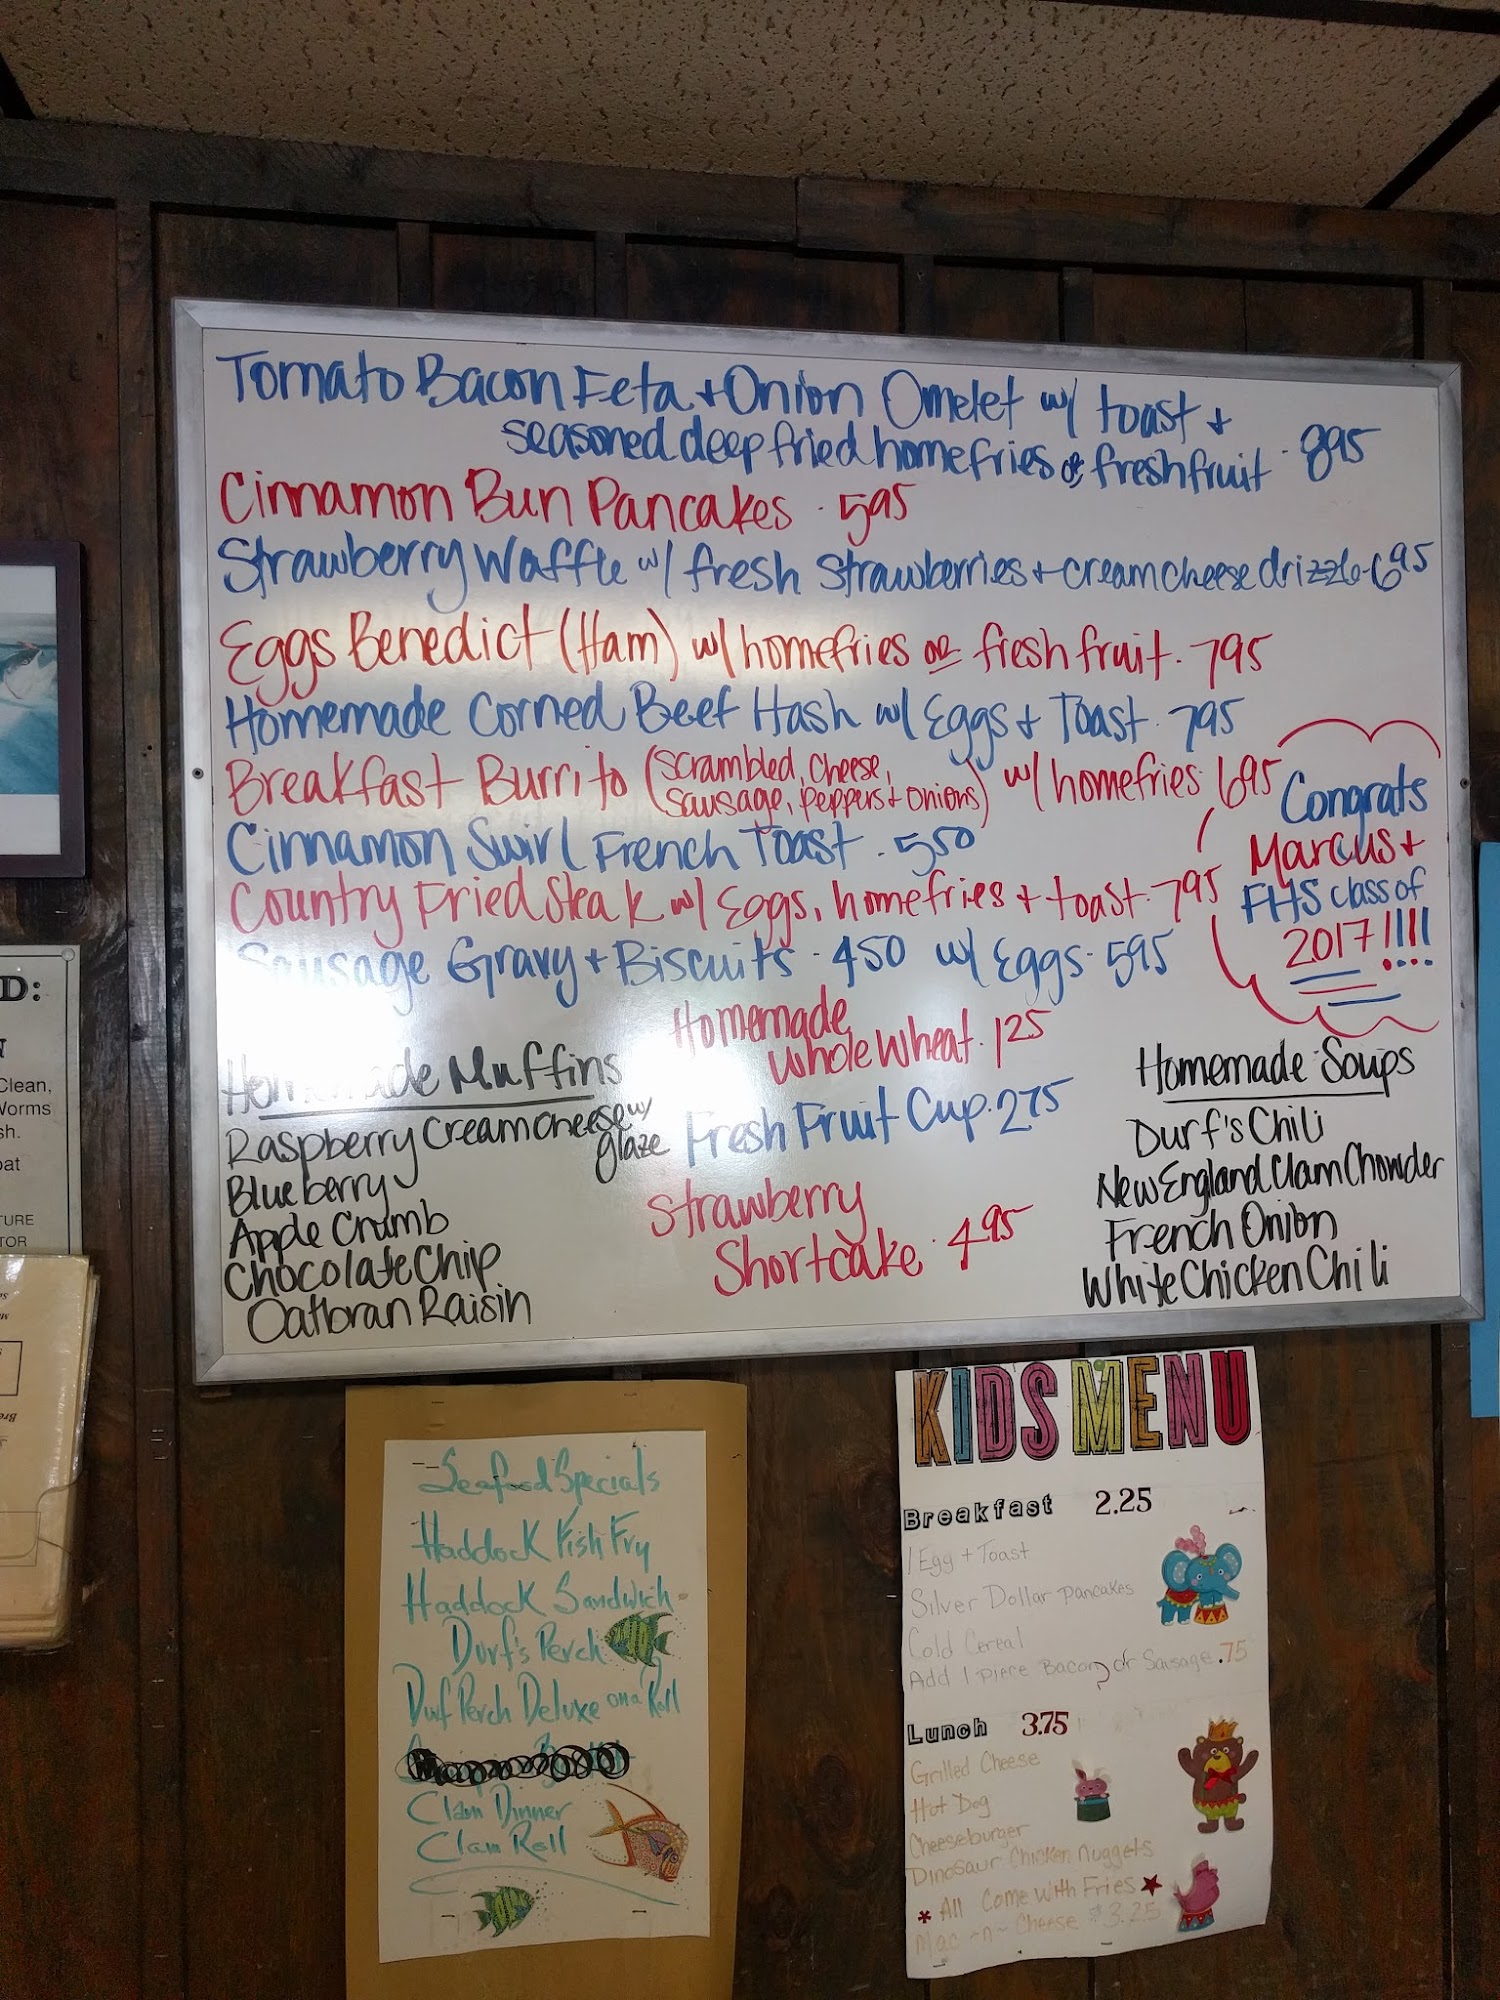 Tomato Bacon Feta + Onion Omelet w/ toast +
seasoned deep fried homefries or fresh fruit - 895
Cinnamon Bun Pancakes - 595
Strawberry Waffle w/ fresh strawberries + cream cheese drizzle - 695
Eggs Benedict (Ham) w/ homefries or fresh fruit - 795
Homemade Corned Beef Hash w/ Eggs + Toast - 795
Breakfast Burrito (scrambled, cheese,
sausage, peppers + onions) w/ homefries - 695
Cinnamon Swirl French Toast - 550
Country Fried Steak w/ Eggs, homefries + toast - 795
Sausage Gravy + Biscuits - 450 w/ Eggs - 595
Congrats
Marcus +
FHS class of
2017!!!!
Homemade Muffins
Raspberry Cream Cheese w/
glaze
Blueberry
Apple Crumb
Chocolate Chip
Oatbran Raisin
Homemade
Whole Wheat - 125
Fresh Fruit Cup - 275
Strawberry
Shortcake - 495
Homemade Soups
Durf's Chili
New England Clam Chowder
French Onion
White Chicken Chili
Seafood Specials
Haddock Fish Fry
Haddock Sandwich
Durf's Perch
Durf Perch Deluxe on a Roll
Clam Dinner
Clam Roll
KIDS MENU
Breakfast 2.25
1 Egg + Toast
Silver Dollar Pancakes
Cold Cereal
Add 1 piece Bacon or Sausage .75
Lunch 3.75
Grilled Cheese
Hot Dog
Cheeseburger
Dinosaur Chicken Nuggets
* All Come with Fries ★
Mac -n- Cheese $3.25
D:
N
Clean,
Worms
sh.
oat
TURE
TOR